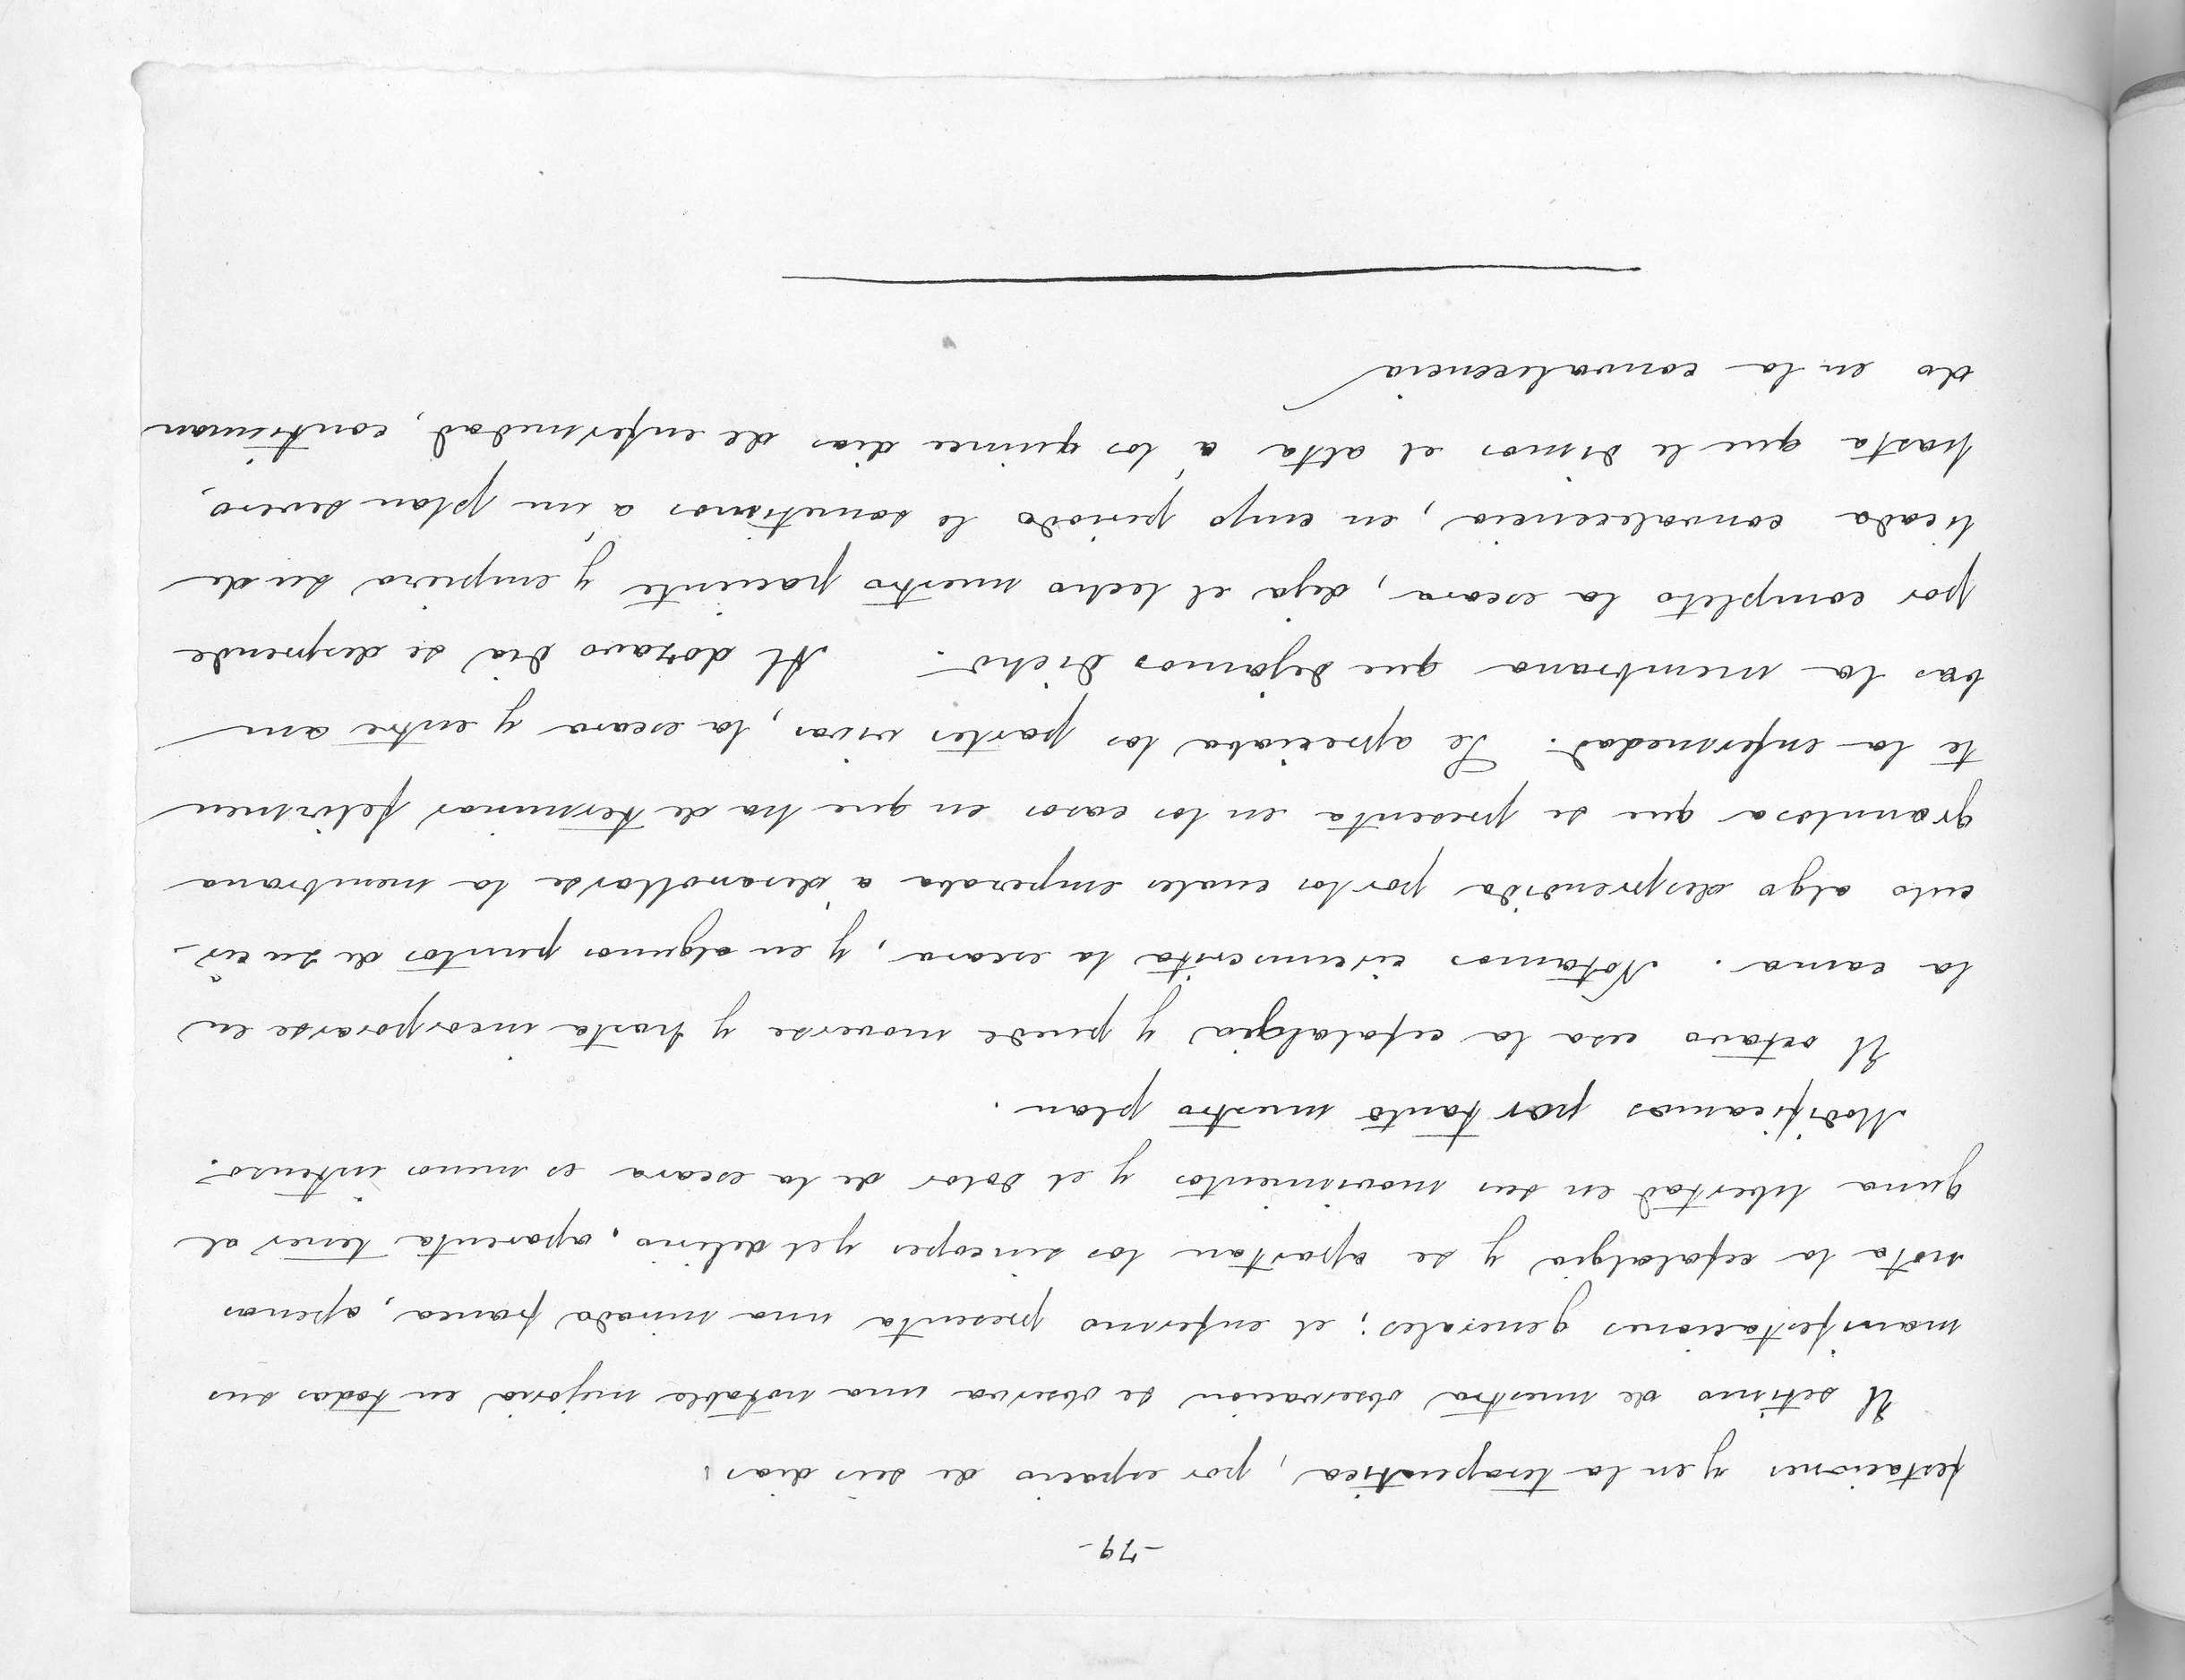 -79-
festaciones y en la terapeutica, por espacio de seis dias.
El setimo de nuestra observacion se observa una notable mejoria en todas sus
manifestaciones generales; el enfermo presenta una mirada franca, apenas
nota la cefalalgia y se apartan los sincopes y el delirio, aparenta tener al
guna libertad en sus movimientos y el dolor de la escara es menos intenso.
Modificamos por tanto nuestro plan.
El octavo cesa la cefalalgia y puede moverse y hasta incorporarse en
la cama. Notamos circunscrita la escara, y en algunos puntos de su cir-
culo algo desprendida por los cuales empezaba a desarrollarse la membrana
granulosa que se presenta en los casos en que ha de terminar felizmen
te la enfermedad. Se apreciaba las partes vivas, la escara y entre am
bas la membrana que dejamos dicho. Al dozavo dia se desprende
por completo la escara, deja el lecho nuestro paciente y empieza su de
licada convalecencia, en cuyo periodo le sometimos a un plan severo,
hasta que le dimos el alta a los quince dias de enfermedad, continuan
do en la convalecencia